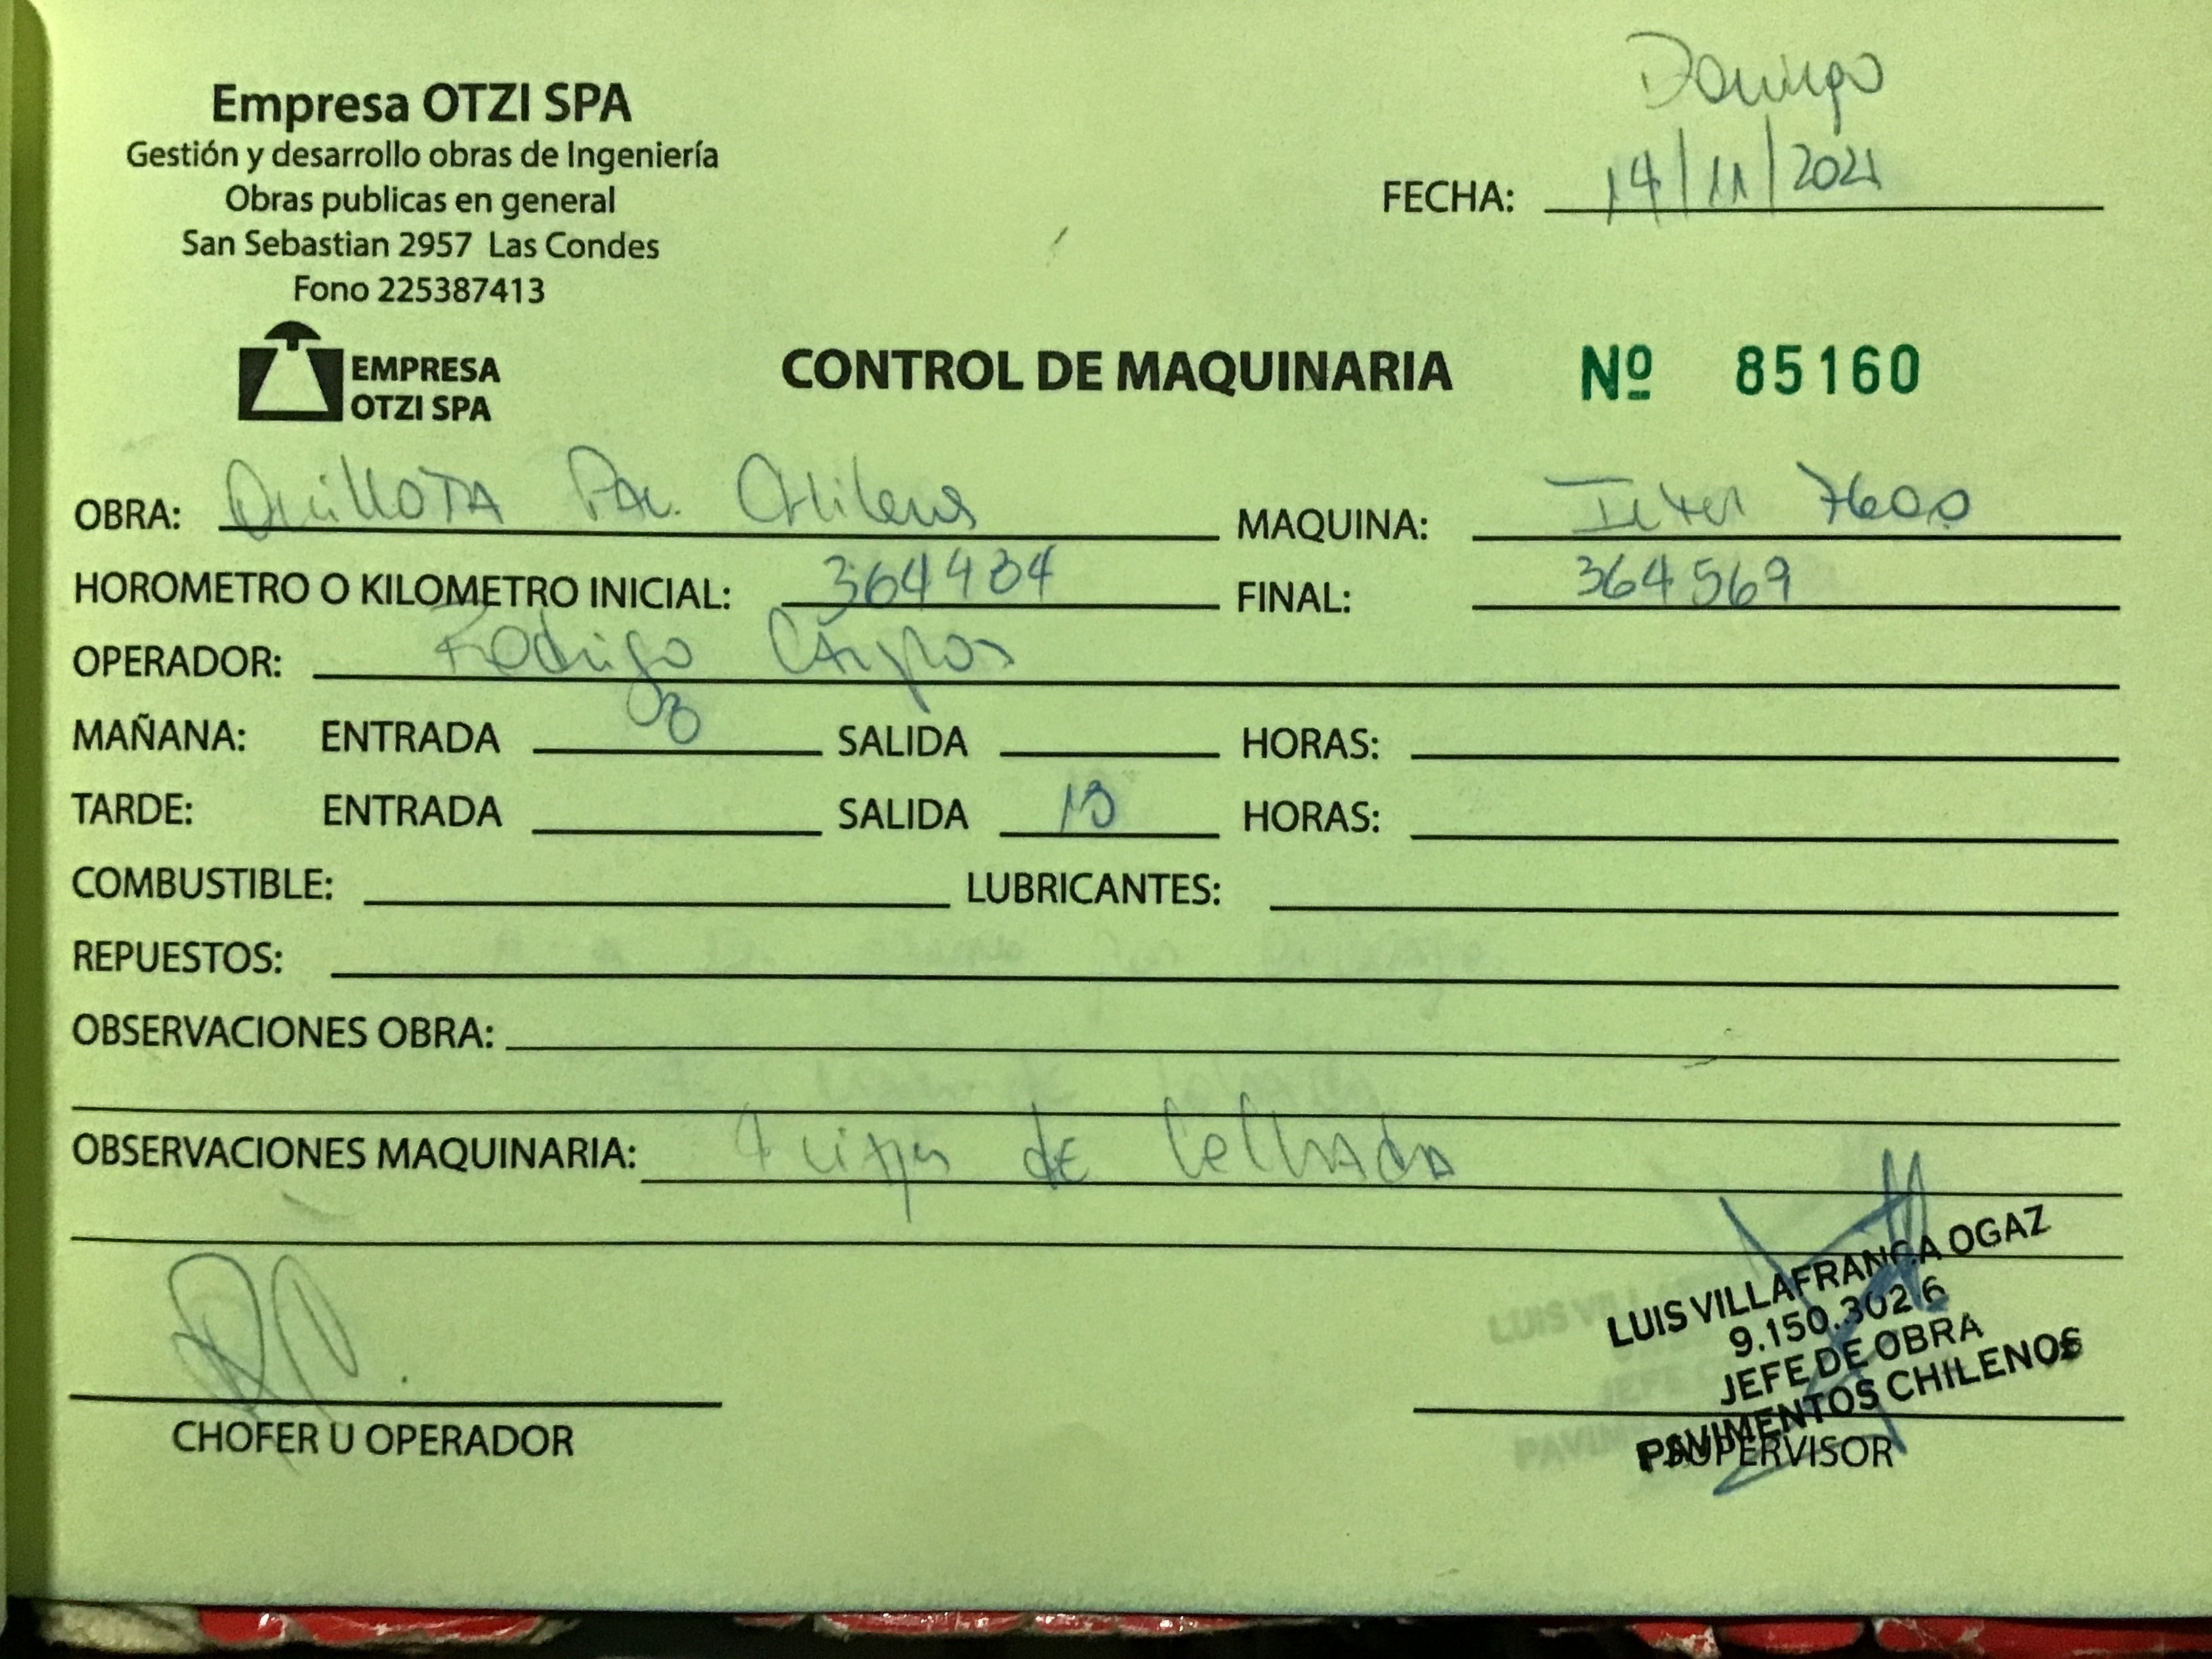 Domingo
Empresa OTZI SPA
Gestión y desarrollo obras de Ingeniería
Obras publicas en general
San Sebastian 2957 Las Condes
Fono 225387413
FECHA: 14/11/2021
EMPRESA
OTZI SPA
CONTROL DE MAQUINARIA Nº 85160
OBRA: Quillota Pav. Chilenos MAQUINA:
HOROMETRO O KILOMETRO INICIAL: 364484 FINAL: 364569
OPERADOR: Rodrigo Campos
MAÑANA: ENTRADA 08 SALIDA HORAS:
TARDE: ENTRADA SALIDA 18 HORAS:
COMBUSTIBLE: LUBRICANTES:
REPUESTOS:
OBSERVACIONES OBRA:
OBSERVACIONES MAQUINARIA: de
CHOFER U OPERADOR
LUIS VILLAFRANCA OGAZ
9.150.302 6
JEFE DE OBRA
PAVIMENTOS CHILENOS
SUPERVISOR